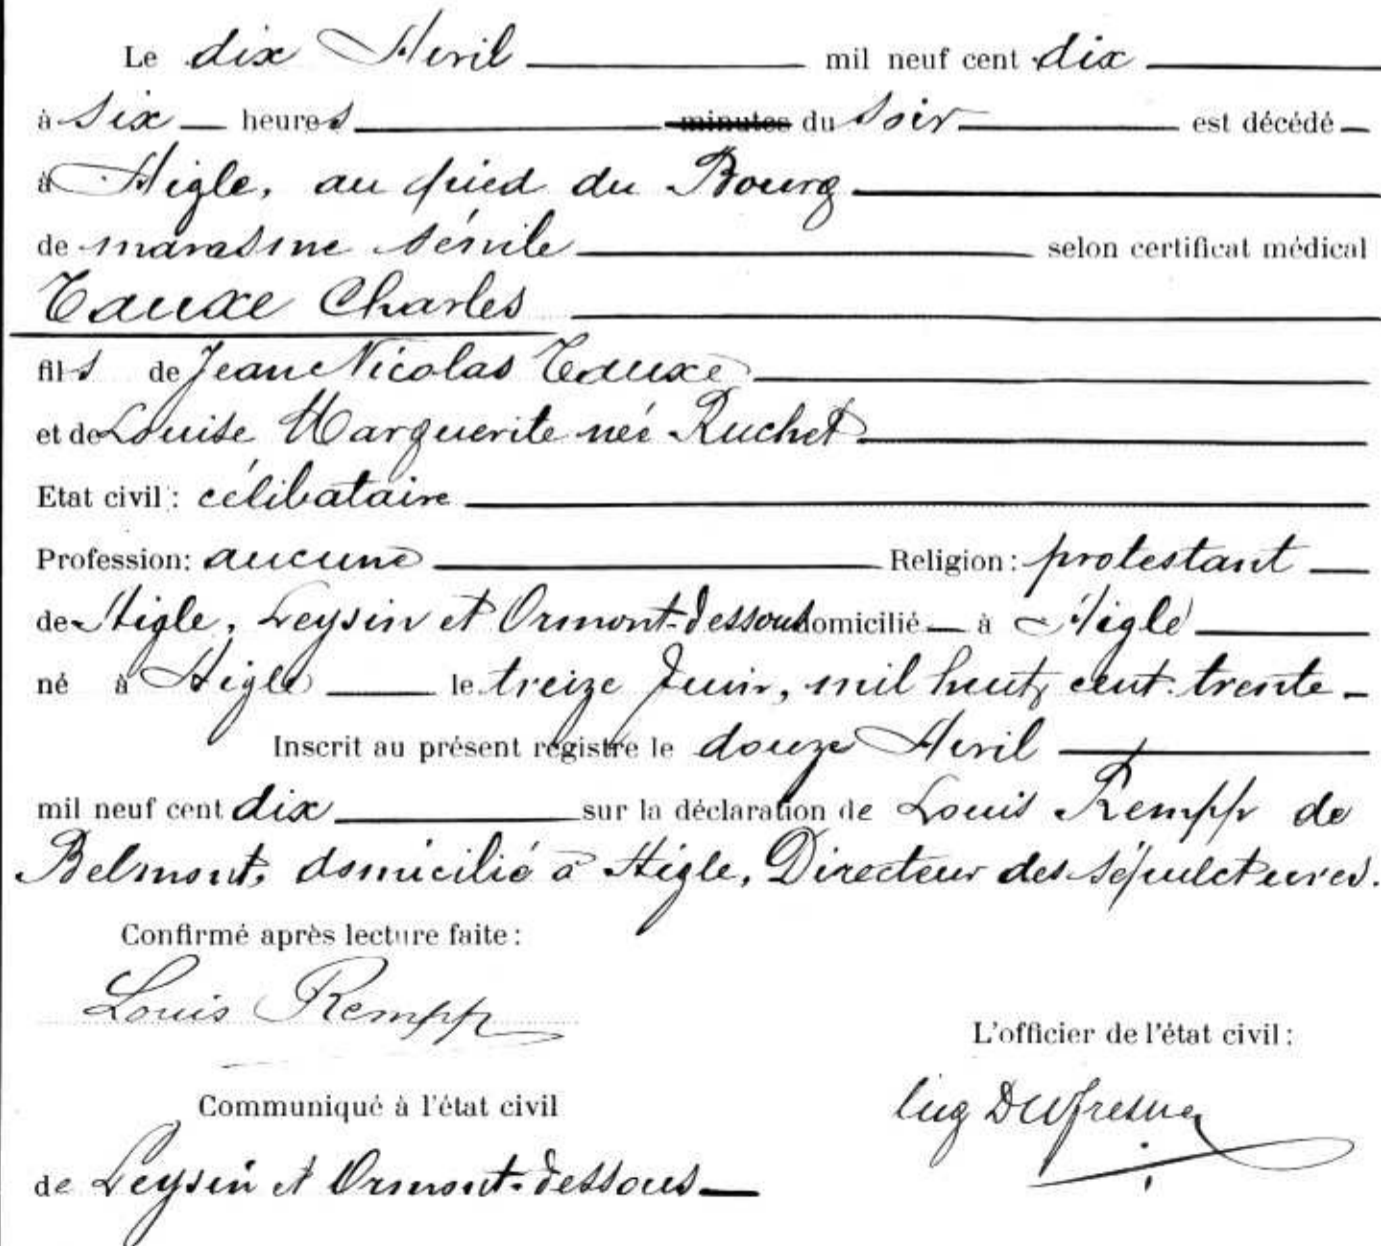 Le dix Avril mil neuf cent dix
à six heures minutes du soir est décédé
à Aigle, au pied du Bourg
de marasme sénile selon certificat médical
Tauxe Charles
fils de Jean Nicolas Tauxe
et de Louise Marguerite née Ruchet
Etat civil : célibataire
Profession: aucune Religion : protestant
de Aigle, Leysin et Ormont-dessous domicilié à Aigle
né à Aigle le treize Juin, mil huit cent trente
Inscrit au présent registre le douze Avril
mil neuf cent dix sur la déclaration de Louis Rempp de
Belmont, domicilié à Aigle, Directeur des sépultures.
Confirmé après lecture faite :
Louis Rempp
L'officier de l'état civil :
Eug Dufresne
Communiqué à l'état civil
de Leysin et Ormont-dessous